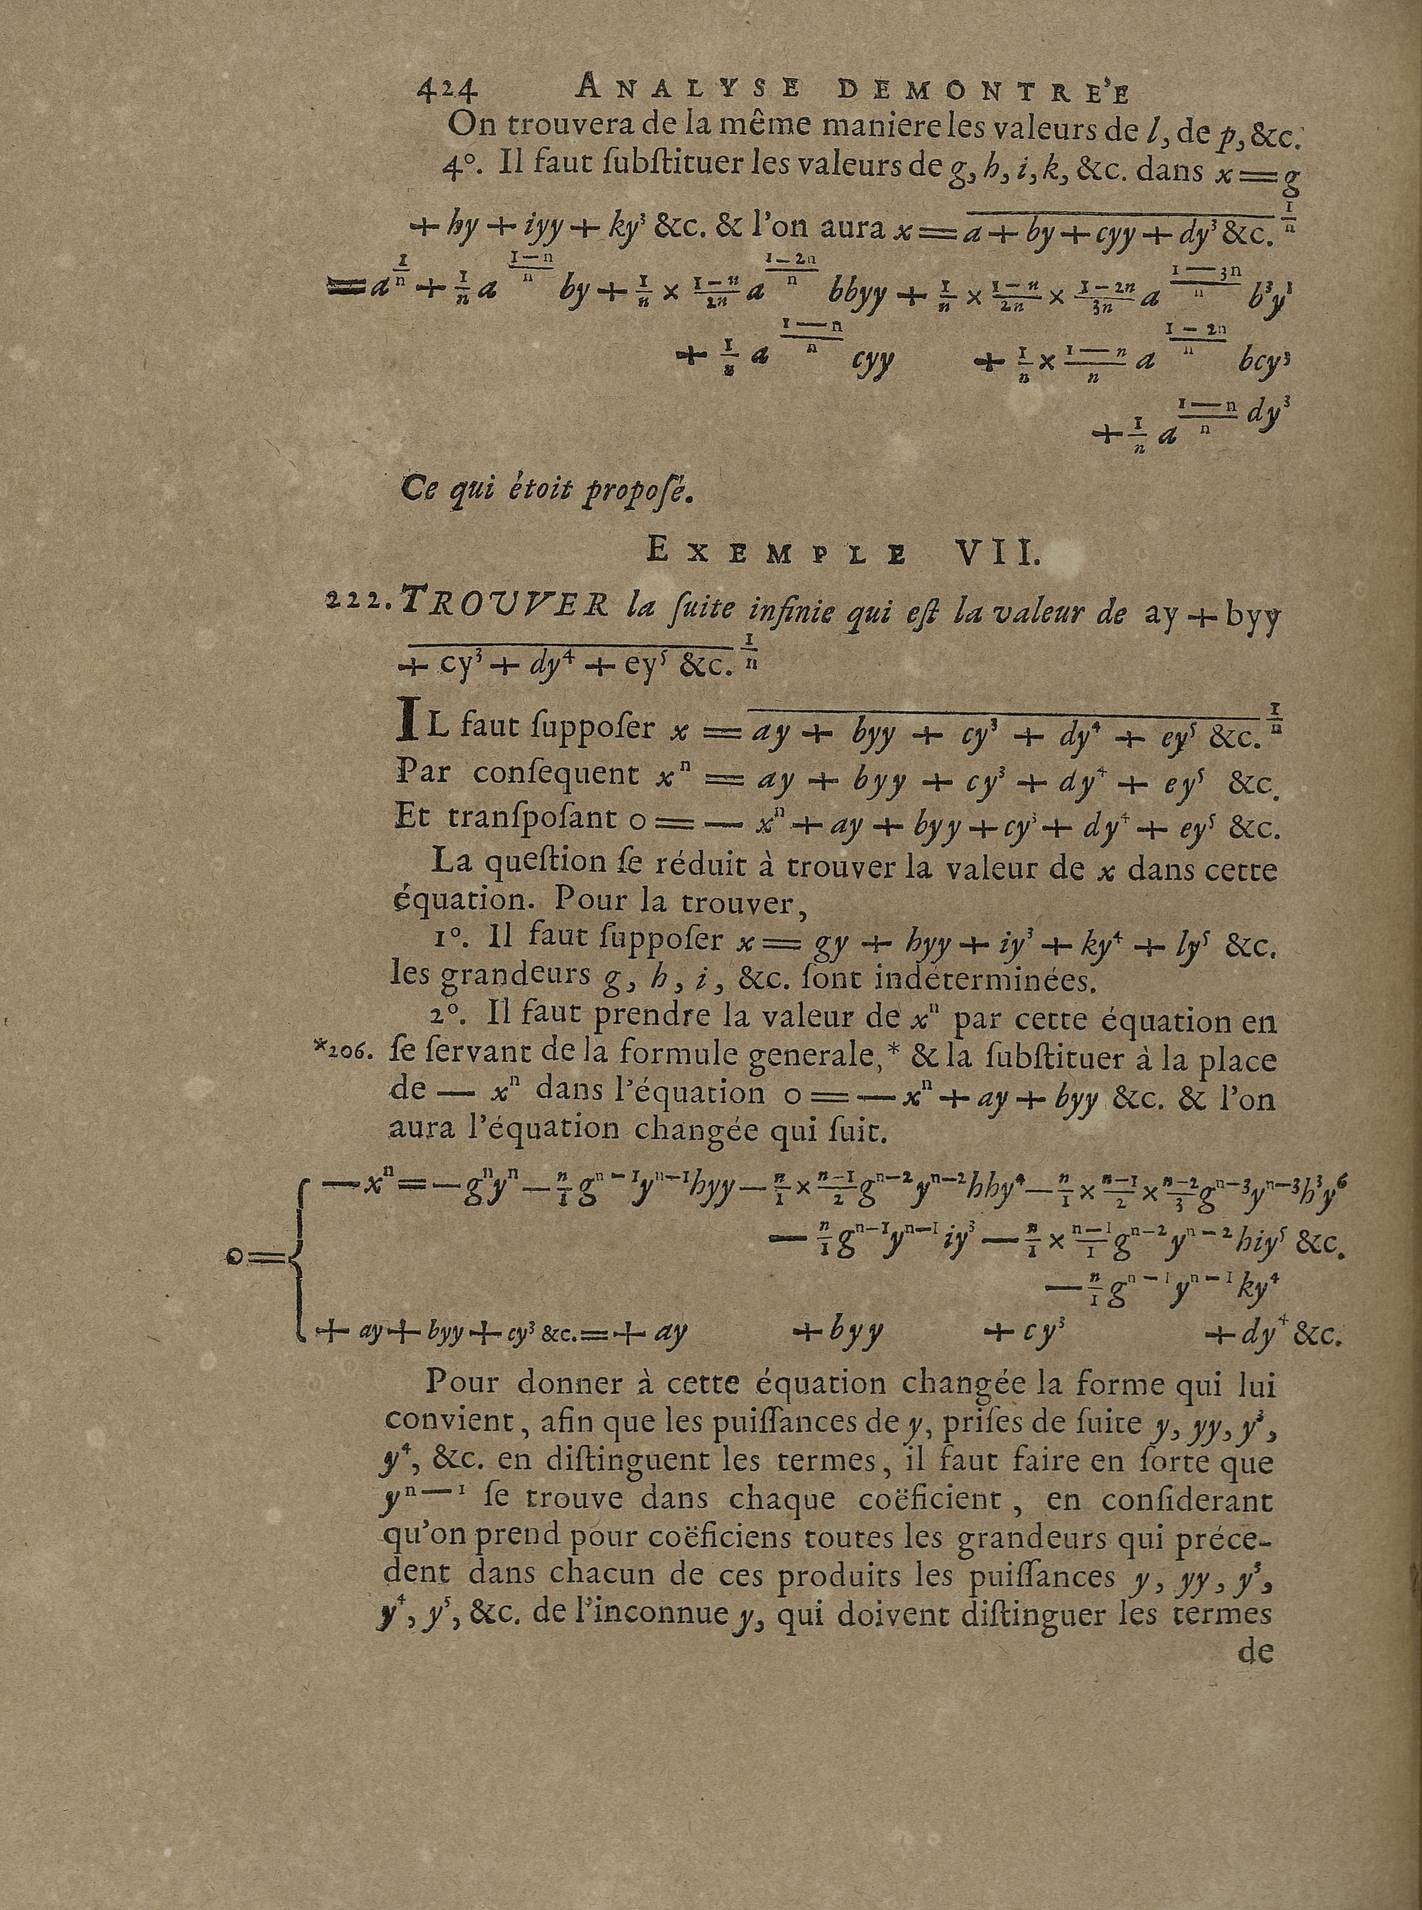 424 ANALYSE DEMONTRE'E
On trouvera de la même maniere les valeurs de l, de p, &c.
4°. Il faut ſubſtituer les valeurs de g, h, i, k, &c. dans x = g
+ hy + iyy + ky³ &c. & l'on aura x = a + by + cyy + dy³ &c. 1/n
= a^(1/n) + 1/n a^((1−n)/n) by + 1/n × (1−n)/2n a^((1−2n)/n) bbyy + 1/n × (1−n)/2n × (1−2n)/3n a^((1−3n)/n) b³y³
+ 1/n a^((1−n)/n) cyy + 1/n × (1−n)/n a^((1−2n)/n) bcy³
+ 1/n a^((1−n)/n) dy³
Ce qui étoit propoſé.
EXEMPLE VII.
222. TROUVER la ſuite infinie qui eſt la valeur de ay + byy
+ cy³ + dy⁴ + ey⁵ &c. 1/n
IL faut ſuppoſer x = ay + byy + cy³ + dy⁴ + ey⁵ &c. 1/n
Par conſequent xⁿ = ay + byy + cy³ + dy⁴ + ey⁵ &c.
Et tranſpoſant o = — xⁿ + ay + byy + cy³ + dy⁴ + ey⁵ &c.
La queſtion ſe réduit à trouver la valeur de x dans cette
équation. Pour la trouver,
1°. Il faut ſuppoſer x = gy + hyy + iy³ + ky⁴ + ly⁵ &c.
les grandeurs g, h, i, &c. ſont indéterminées.
2°. Il faut prendre la valeur de xⁿ par cette équation en
*206. ſe ſervant de la formule generale,* & la ſubſtituer à la place
de — xⁿ dans l'équation o = — xⁿ + ay + byy &c. & l'on
aura l'équation changée qui ſuit.
— xⁿ = — gⁿyⁿ — n/1 gⁿ⁻¹yⁿ⁻¹hyy — n/1 × (n−1)/2 gⁿ⁻²yⁿ⁻²hhy⁴ — n/1 × (n−1)/2 × (n−2)/3 gⁿ⁻³yⁿ⁻³h³y⁶
— n/1 gⁿ⁻¹yⁿ⁻¹iy³ — n/1 × (n−1)/1 gⁿ⁻²yⁿ⁻²hiy⁵ &c.
o = {
— n/1 gⁿ⁻¹yⁿ⁻¹ky⁴
+ ay + byy + cy³ &c. = + ay + byy + cy³ + dy⁴ &c.
Pour donner à cette équation changée la forme qui lui
convient, afin que les puiſſances de y, priſes de ſuite y, yy, y³,
y⁴, &c. en diſtinguent les termes, il faut faire en ſorte que
yⁿ⁻¹ ſe trouve dans chaque coëficient, en conſiderant
qu'on prend pour coëficiens toutes les grandeurs qui préce-
dent dans chacun de ces produits les puiſſances y, yy, y³,
y⁴, y⁵, &c. de l'inconnue y, qui doivent diſtinguer les termes
de